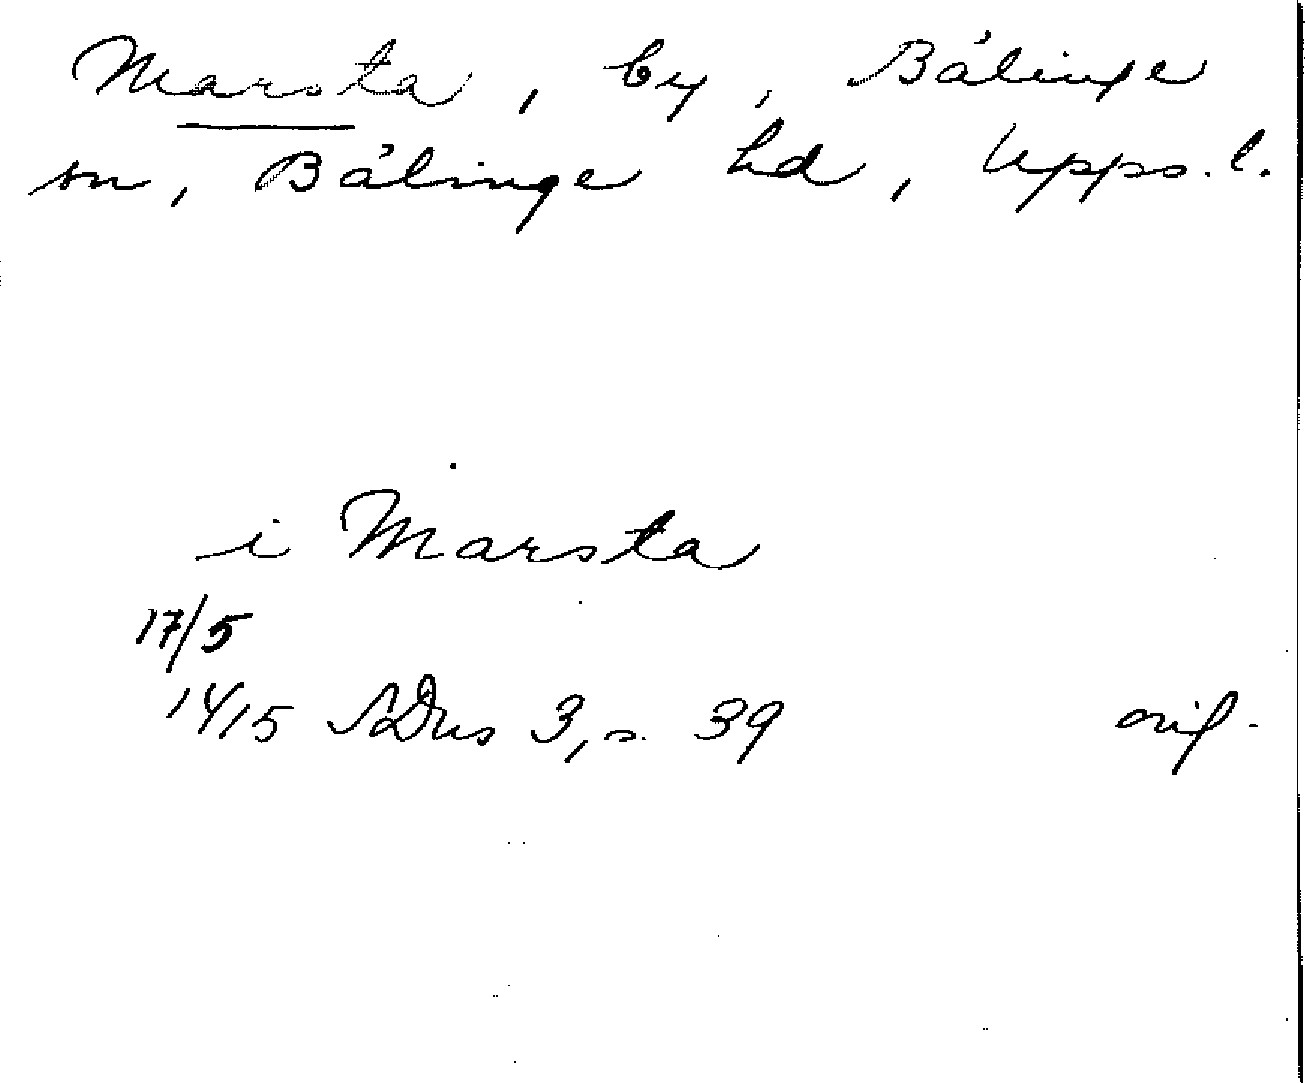 Marsta, by, Bälinge
sn, Bälinge hd, Upps. l.
i Marsta
17/5
1415 SDns 3, s. 39 orig.